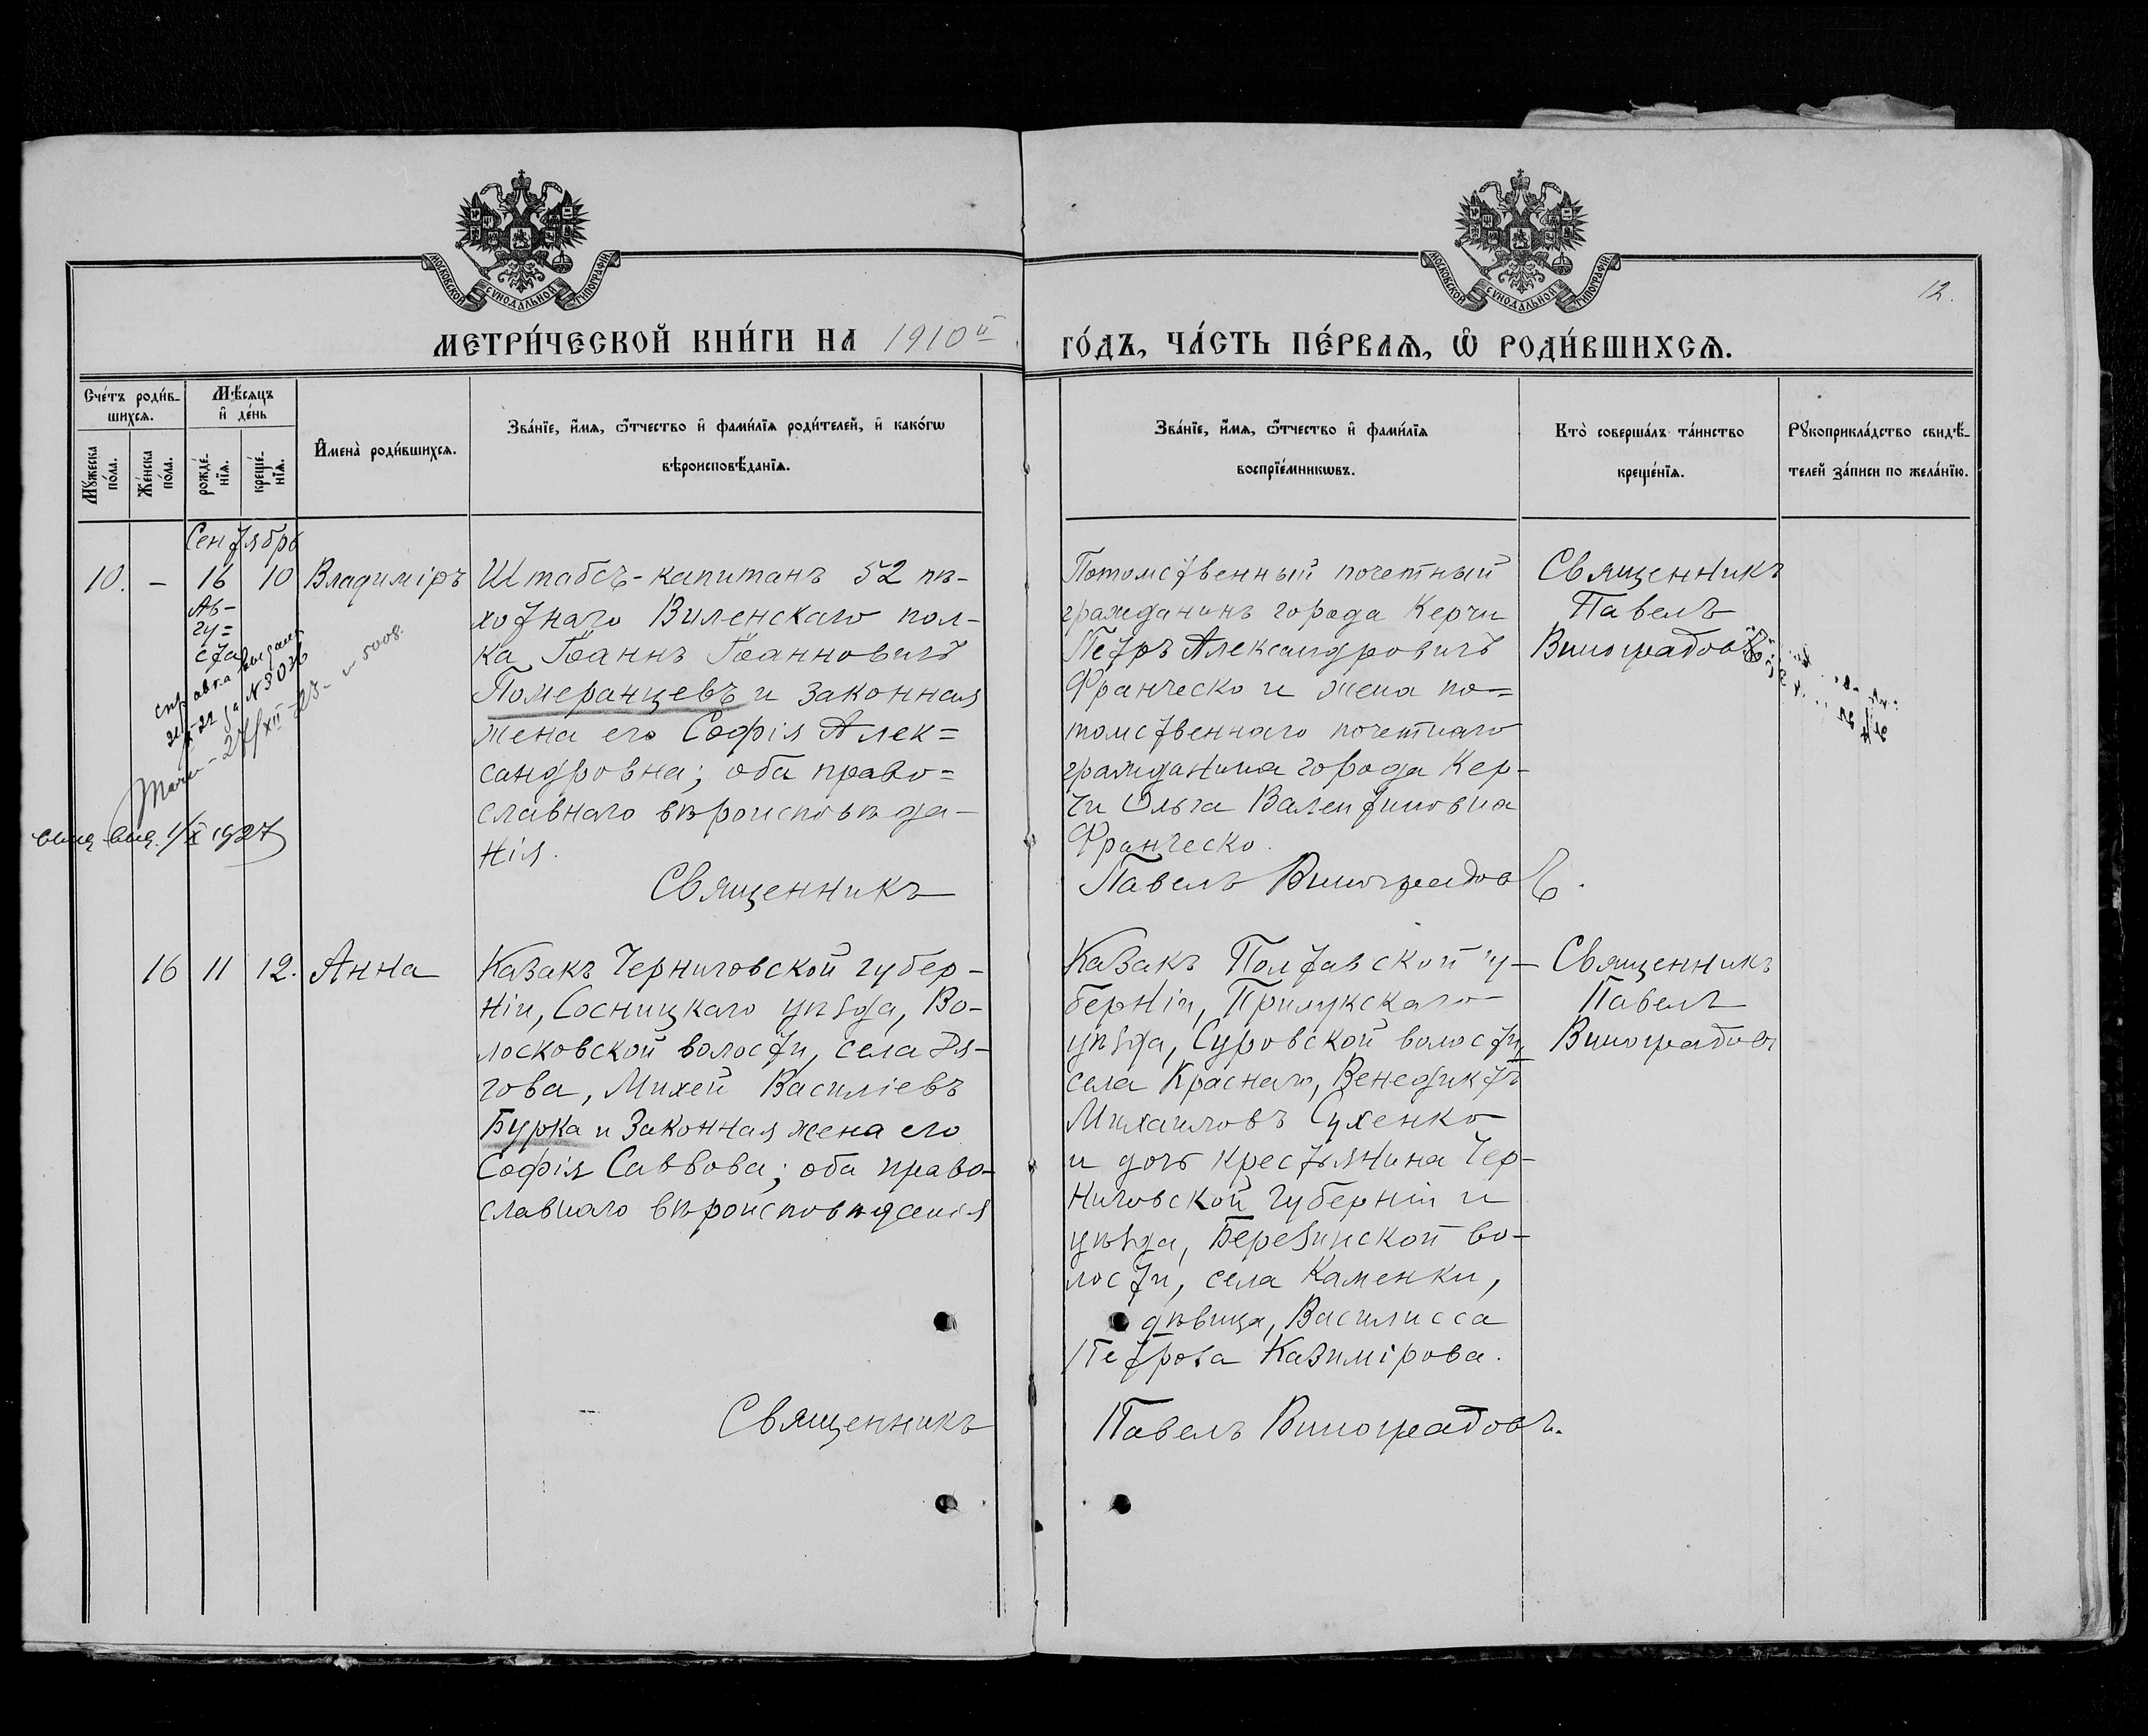 МОСКОВСКОЙ СѴНОДАЛЬНОЙ ТИПОГРАФІИ
МОСКОВСКОЙ СѴНОДАЛЬНОЙ ТИПОГРАФІИ
12.
МЕТРИ́ЧЕСКОЙ КНИ́ГИ НА 1910й
ГО́ДЪ, ЧА́СТЬ ПЕ́РВАѦ, Ѡ҆ РОДИ́ВШИХСѦ.
Сче́тъ роди́в-
шихсѧ.
Мѣ́сѧцъ
и҆ де́нь
Мꙋ́жеска по́ла.
Же́нска по́ла.
рожде́-
нїѧ.
креще́-
нїѧ.
И҆мена̀ роди́вшихсѧ.
Зва́нїе, и҆́мѧ, ѻ҆́тчество и҆ фами́лїѧ роди́телей, и҆ како́гѡ
вѣроисповѣ́данїѧ.
Зва́нїе, и҆́мѧ, ѻ҆́тчество и҆ фами́лїѧ
воспрїе́мникѡвъ.
Кто̀ соверша́лъ та́инство
креще́нїѧ.
Рꙋкоприкла́дство свидѣ́-
телей за́писи по жела́нїю.
Сентябрь
10. – 16 10 Владиміръ
Ав-
гу=
ста
справка выдана
за № 3036
5008.
1/X 1927
Штабсъ-капитанъ 52 пѣ-
хотнаго Виленскаго пол-
ка Іоаннъ Іоанновичъ
Померанцевъ и законная
жена его Софія Алек=
сандровна; оба право=
славнаго вѣроисповѣда-
нія.
Священникъ
Потомственный почетный
гражданинъ города Керчи
Петръ Александровичъ
Франческо и жена по=
томственнаго почетнаго
гражданина города Кер-
чи Ольга Валентиновна
Франческо.
Павелъ Виноградовъ.
Священникъ
Павелъ
Виноградовъ
16 11 12. Анна
Казакъ Черниговской губер-
ніи, Сосницкаго уѣзда, Во-
лосковской волости, села Дя-
гова, Михей Василіевъ
Бурка и законная жена его
Софія Саввова; оба право-
славнаго вѣроисповѣданія
Священникъ
Казакъ Полтавской гу-
берніи, Прилукскаго
уѣзда, Суровской волости,
села Краснаго, Венедиктъ
Михаиловъ Сухенко
и дочь крестьянина Чер-
ниговской губерніи и
уѣзда, Березинской во-
лости, села Каменки,
дѣвица, Василисса
Петрова Казимірова.
Павелъ Виноградовъ.
Священникъ
Павелъ
Виноградовъ